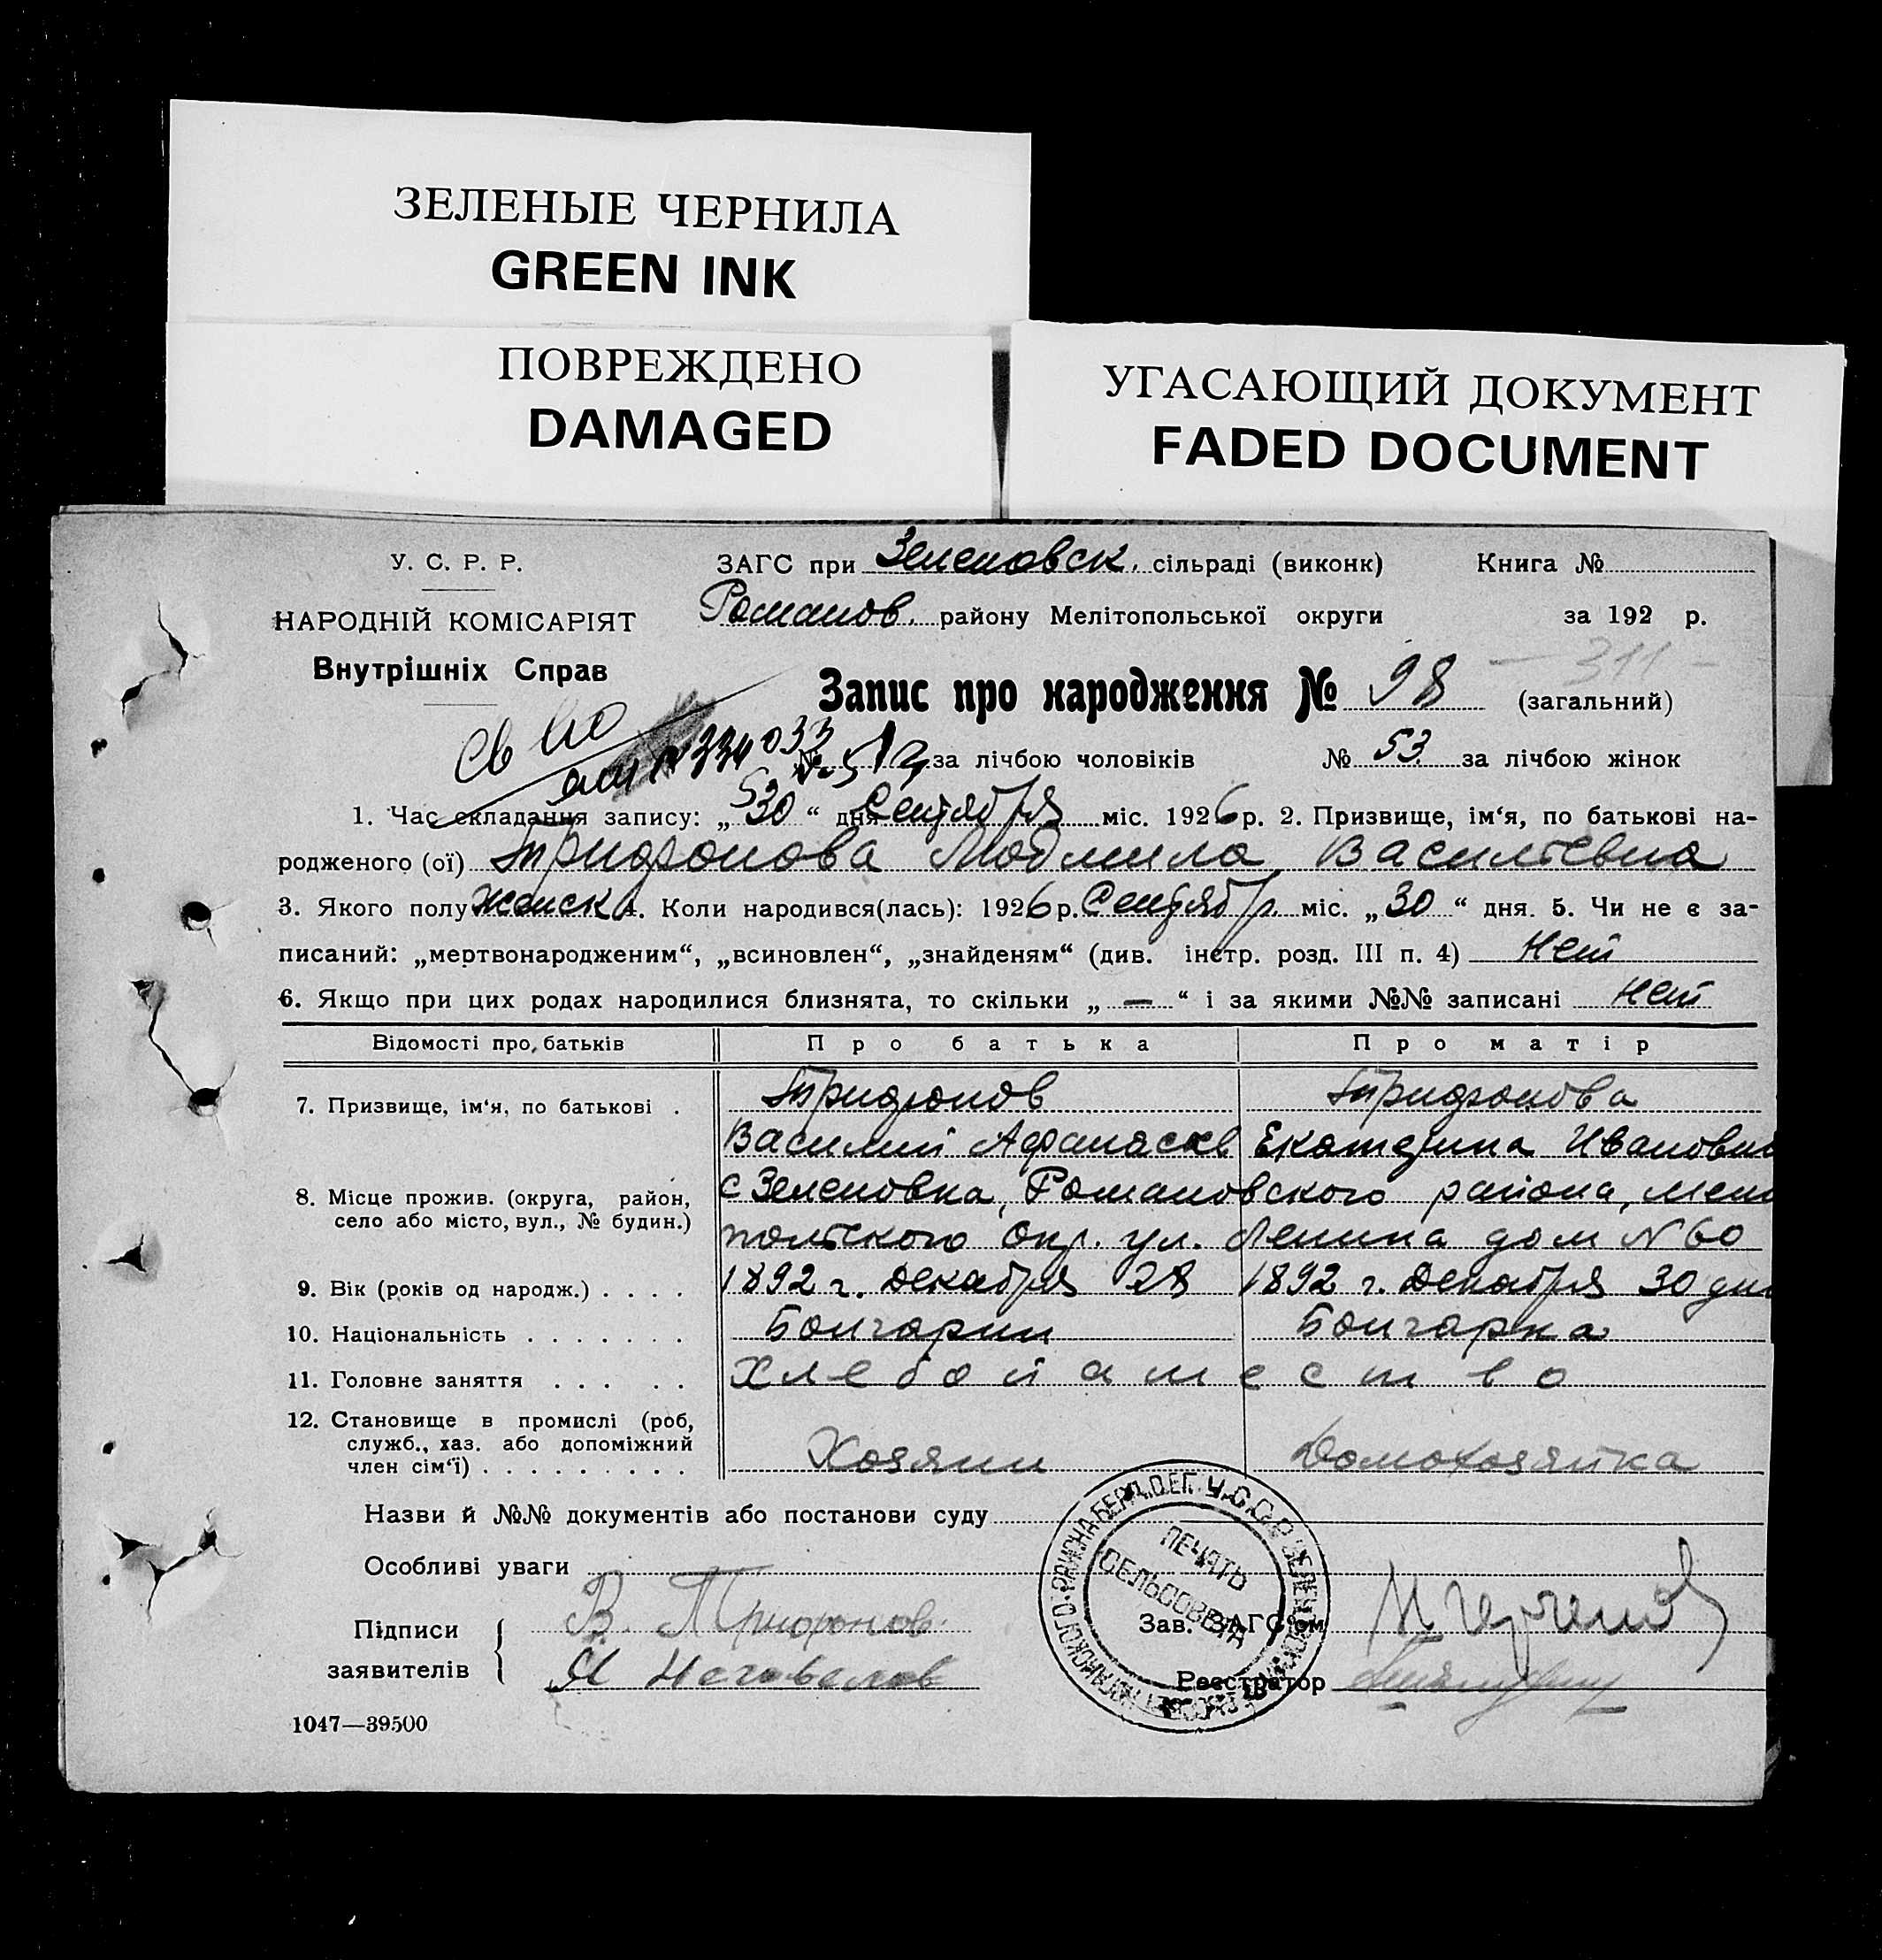 ЗЕЛЕНЫЕ ЧЕРНИЛА
GREEN INK
ПОВРЕЖДЕНО
DAMAGED
УГАСАЮЩИЙ ДОКУМЕНТ
FADED DOCUMENT
У. С. Р. Р.
НАРОДНІЙ КОМІСАРІЯТ
Внутрішніх Справ
ЗАГС при Зеленовск. сільраді (виконк) Книга №
Романов. району Мелітопольської округи за 192 р.
- 311 -
Запис про народження № 98 (загальний)
334033
№ за лічбою чоловіків № 53 за лічбою жінок
1. Час складання запису: „ 30 “ дня Сентября міс. 1926 р. 2. Призвище, ім‘я, по батькові на-
родженого (ої) Трифонова Людмила Васильевна
3. Якого полу Женск 4. Коли народився(лась): 1926 р. Сентябр. міс. „ 30 “ дня. 5. Чи не є за-
писаний: „мертвонародженим“, „всиновлен“, „знайденям“ (див. інстр. розд. III п. 4) Нет
6. Якщо при цих родах народилися близнята, то скільки „ — “ і за якими №№ записані нет
Відомості про батьків Про батька Про матір
7. Призвище, ім‘я, по батькові . Трифонов Трифонова
Василий Афанасев Екатерина Ивановна
8. Місце прожив. (округа, район, село або місто, вул., № будин.) с Зеленовка, Романовского района, Мели
польского Окр. ул. Ленина дом N 60
9. Вік (років од народж.) . . . . 1892 г. Декабря 28 1892 г. Декабря 30 дня
10. Національність . . . . . . . Болгарин Болгарка
11. Головне заняття . . . . . Хлебопашество
12. Становище в промислі (роб, служб., хаз. або допоміжний член сім‘ї) . . . . . . . . . Хозяин Домохозяйка
Назви й №№ документів або постанови суду
Особливі уваги
Підписи заявителів В. Трифонов.
ПЕЧАТЬ
СЕЛЬСОВЕТА
Зав. ЗАГС‘ом
Реєстратор
1047—39500